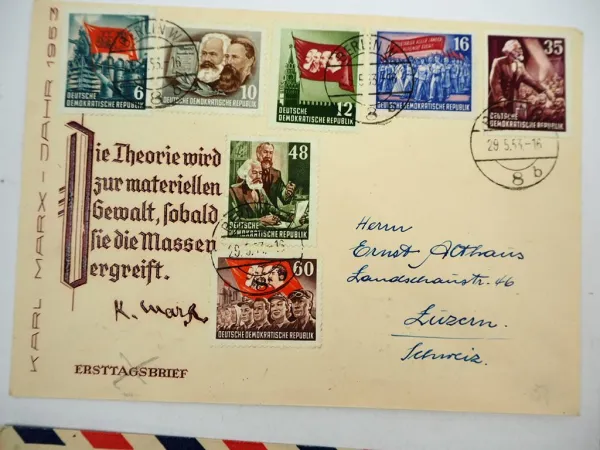 KARL MARX-JAHR 1953
6
DEUTSCHE
DEMOKRATISCHE REPUBLIK
10
DEUTSCHE
DEMOKRATISCHE REPUBLIK
12
DEUTSCHE
DEMOKRATISCHE REPUBLIK
16
DEUTSCHE
DEMOKRATISCHE REPUBLIK
35
DEUTSCHE
DEMOKRATISCHE REPUBLIK
BERLIN W
BERLIN W
29.5.53.-16
8 b
Die Theorie wird
zur materiellen
Gewalt, sobald
sie die Massen
ergreift.
K. Marx
48
DEUTSCHE
DEMOKRATISCHE REPUBLIK
60
DEUTSCHE DEMOKRATISCHE REPUBLIK
Herrn
Ernst Althaus
Luzern.
Schweiz.
ERSTTAGSBRIEF